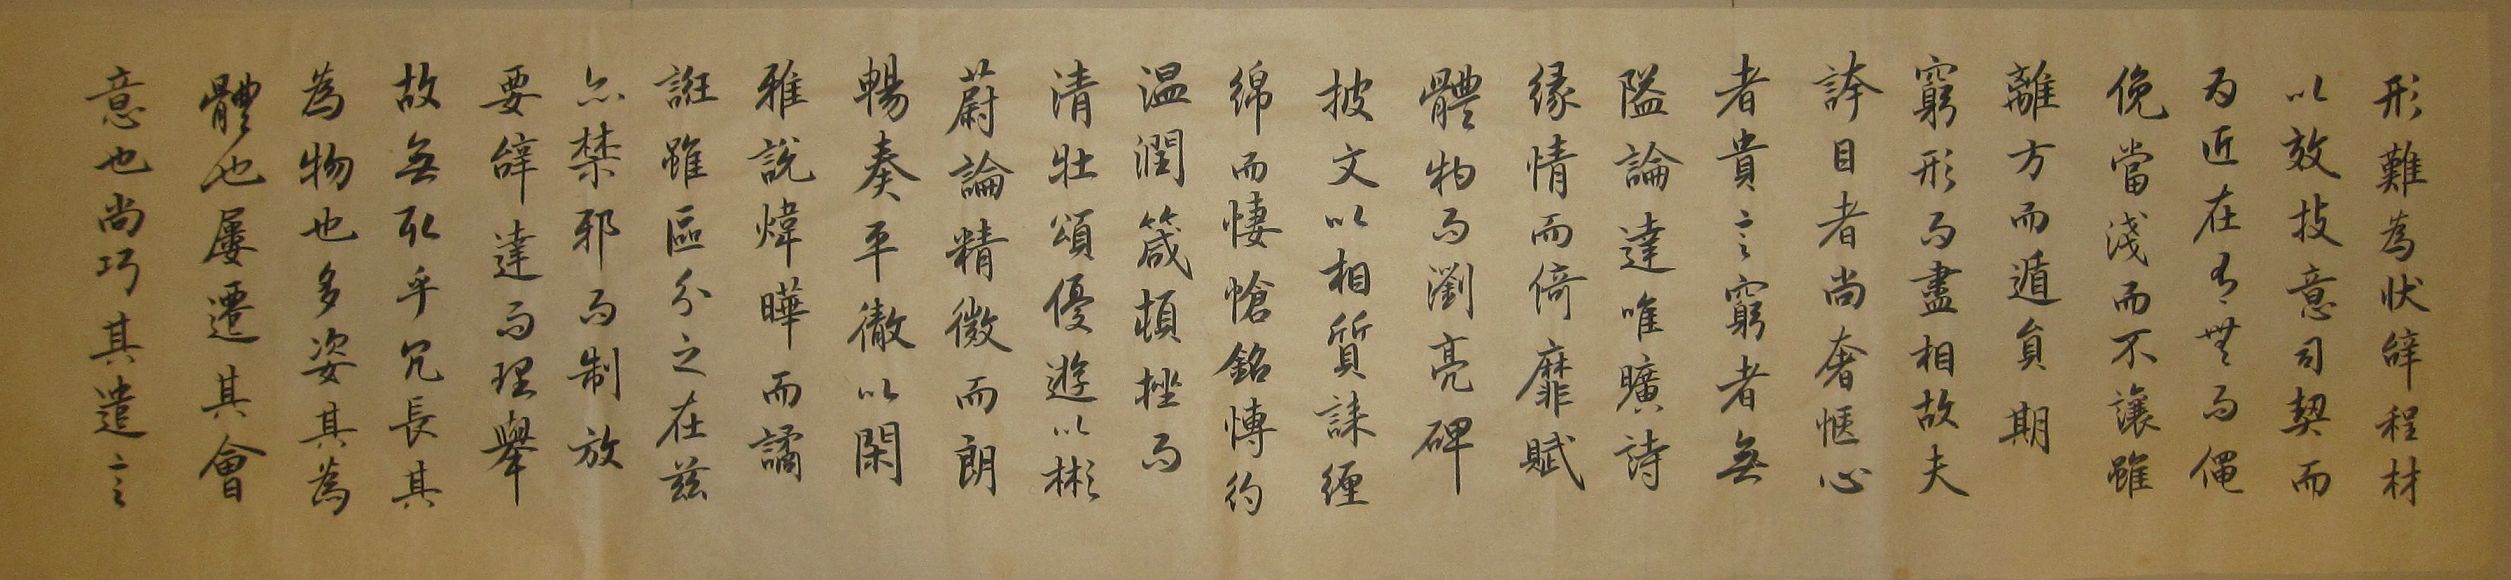 形難為狀辝程材
以效技意司契而
為近在有無而僶
俛當淺而不讓雖
離方而遁員期
窮形而盡相故夫
誇目者尚奢愜心
者貴言窮者無
隘論達唯曠詩
緣情而倚靡賦
體物而瀏亮碑
披文以相質誄纏
綿而悽愴銘愽約
温潤箴頓挫而
清壮頌優遊以彬
蔚論精微而朗
暢奏平徹以閑
雅說煒曄而譎
誑雖區分之在茲
亦禁邪而制放
要辝達而理舉
故無取乎冗長其
為物也多姿其為
體也屢遷其會
意也尚巧其遣言